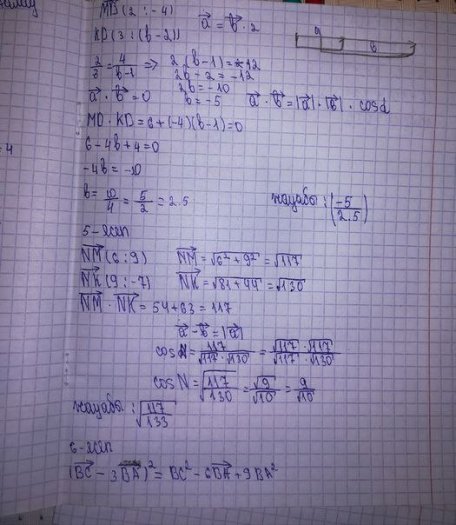 MD (2 ; -4)
a = b · 2
KD (3 ; (b-2))
2/3 = 4/b-1 => 2(b-1) = -12
2b - 2 = -12
2b = -10
b = -5
a · b = 0
a · b = |a| · |b| · cosα
MD · KD = 6 + (-4)(b-1) = 0
6 - 4b + 4 = 0
-4b = -10
b = 10/4 = 5/2 = 2.5
жауабы : (-5/2.5)
5-есеп
NM (6 ; 9) NM = √6² + 9² = √117
NK (9 ; -7) NK = √81 + 49 = √130
NM · NK = 54 + 63 = 117
a - b = |a|
cos N = 117/√117 · √130 = √117 · √117/√117 · √130
cos N = √117/130 = √9/√10 = 9/√10
жауабы : √117/133
6-есеп
(BC - 3BA)² = BC² - 6BA + 9BA²